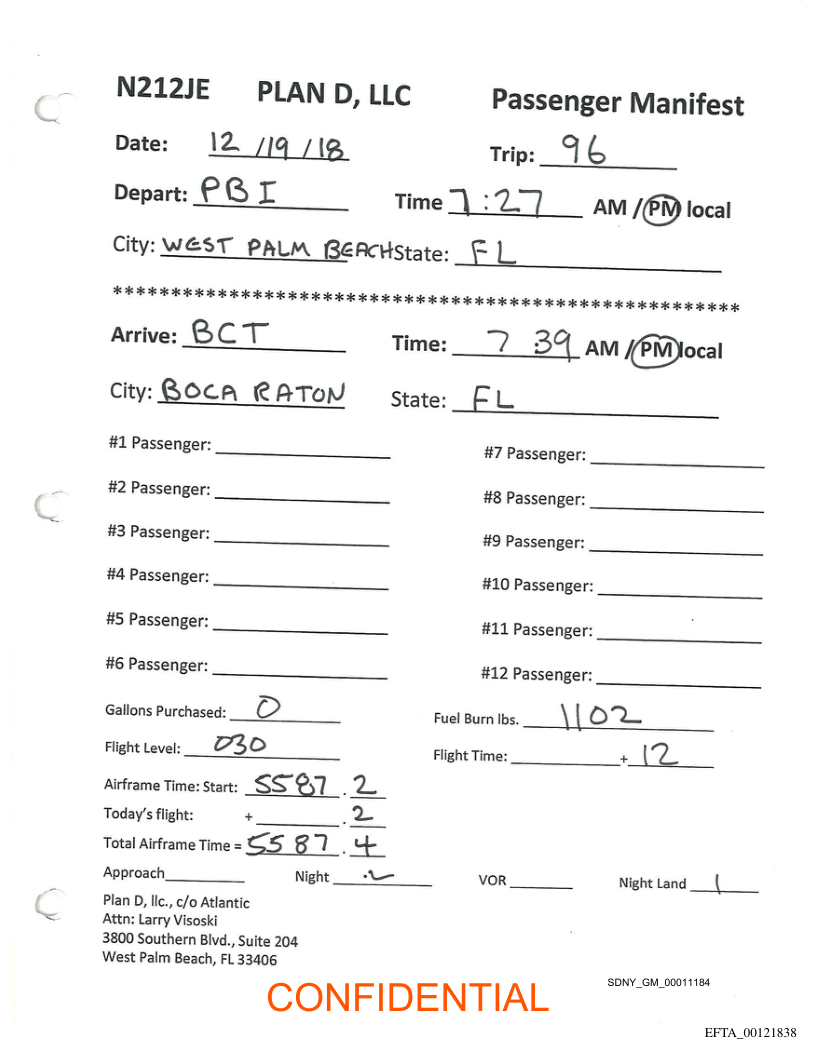 N212JE PLAN D, LLC Passenger Manifest
Date: 12 /19 /18 Trip: 96
Depart: PBI Time 7:27 AM / PM local
City: WEST PALM BEACH State: FL
******************************************************
Arrive: BCT Time: 7 39 AM / PM local
City: BOCA RATON State: FL
#1 Passenger: #7 Passenger:
#2 Passenger: #8 Passenger:
#3 Passenger: #9 Passenger:
#4 Passenger: #10 Passenger:
#5 Passenger: #11 Passenger:
#6 Passenger: #12 Passenger:
Gallons Purchased: 0 Fuel Burn lbs. 1102
Flight Level: 030 Flight Time: + 12
Airframe Time: Start: 5587 . 2
Today's flight: + . 2
Total Airframe Time = 5587 . 4
Approach Night .2 VOR Night Land 1
Plan D, llc., c/o Atlantic
Attn: Larry Visoski
3800 Southern Blvd., Suite 204
West Palm Beach, FL 33406
SDNY_GM_00011184
CONFIDENTIAL
EFTA_00121838